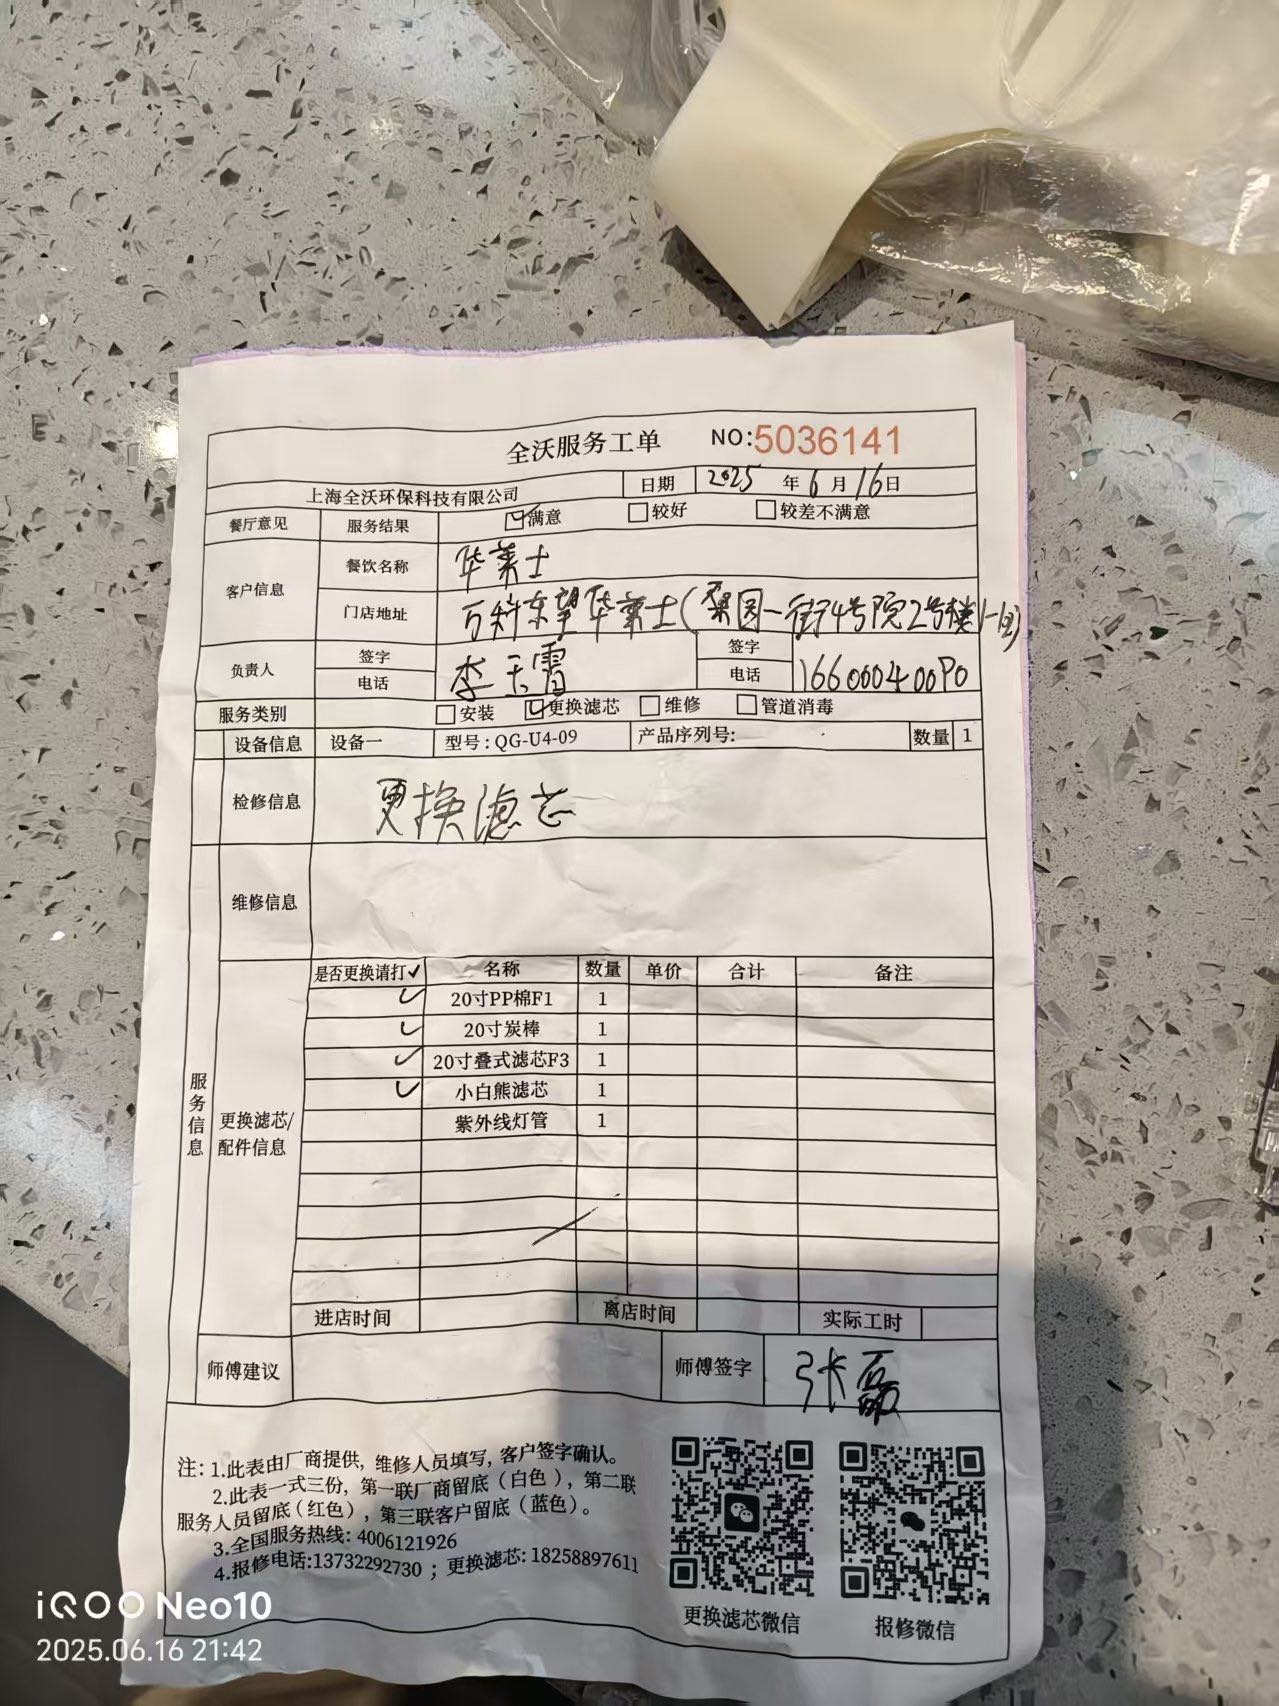 全沃服务工单 NO:5036141
上海全沃环保科技有限公司 日期 2025 年 6 月 16 日
餐厅意见 服务结果 ☑满意 □较好 □较差不满意
客户信息 餐饮名称 华莱士
门店地址 万科东望华莱士(梨园一街4号院2号楼1-1)
负责人 签字 李玉雷 签字
电话 电话 166000400
服务类别 □安装 ☑更换滤芯 □维修 □管道消毒
设备信息 设备一 型号:QG-U4-09 产品序列号: 数量 1
检修信息 更换滤芯
维修信息
服务信息
更换滤芯/
配件信息
是否更换请打✓ 名称 数量 单价 合计 备注
✓ 20寸PP棉F1 1
✓ 20寸炭棒 1
✓ 20寸叠式滤芯F3 1
✓ 小白熊滤芯 1
紫外线灯管 1
进店时间 离店时间 实际工时
师傅建议 师傅签字 张磊
注:1.此表由厂商提供,维修人员填写,客户签字确认。
2.此表一式三份,第一联厂商留底(白色),第二联
服务人员留底(红色),第三联客户留底(蓝色)。
3.全国服务热线:4006121926
4.报修电话:13732292730 ;更换滤芯:18258897611
更换滤芯微信 报修微信
iQOO Neo10
2025.06.16 21:42